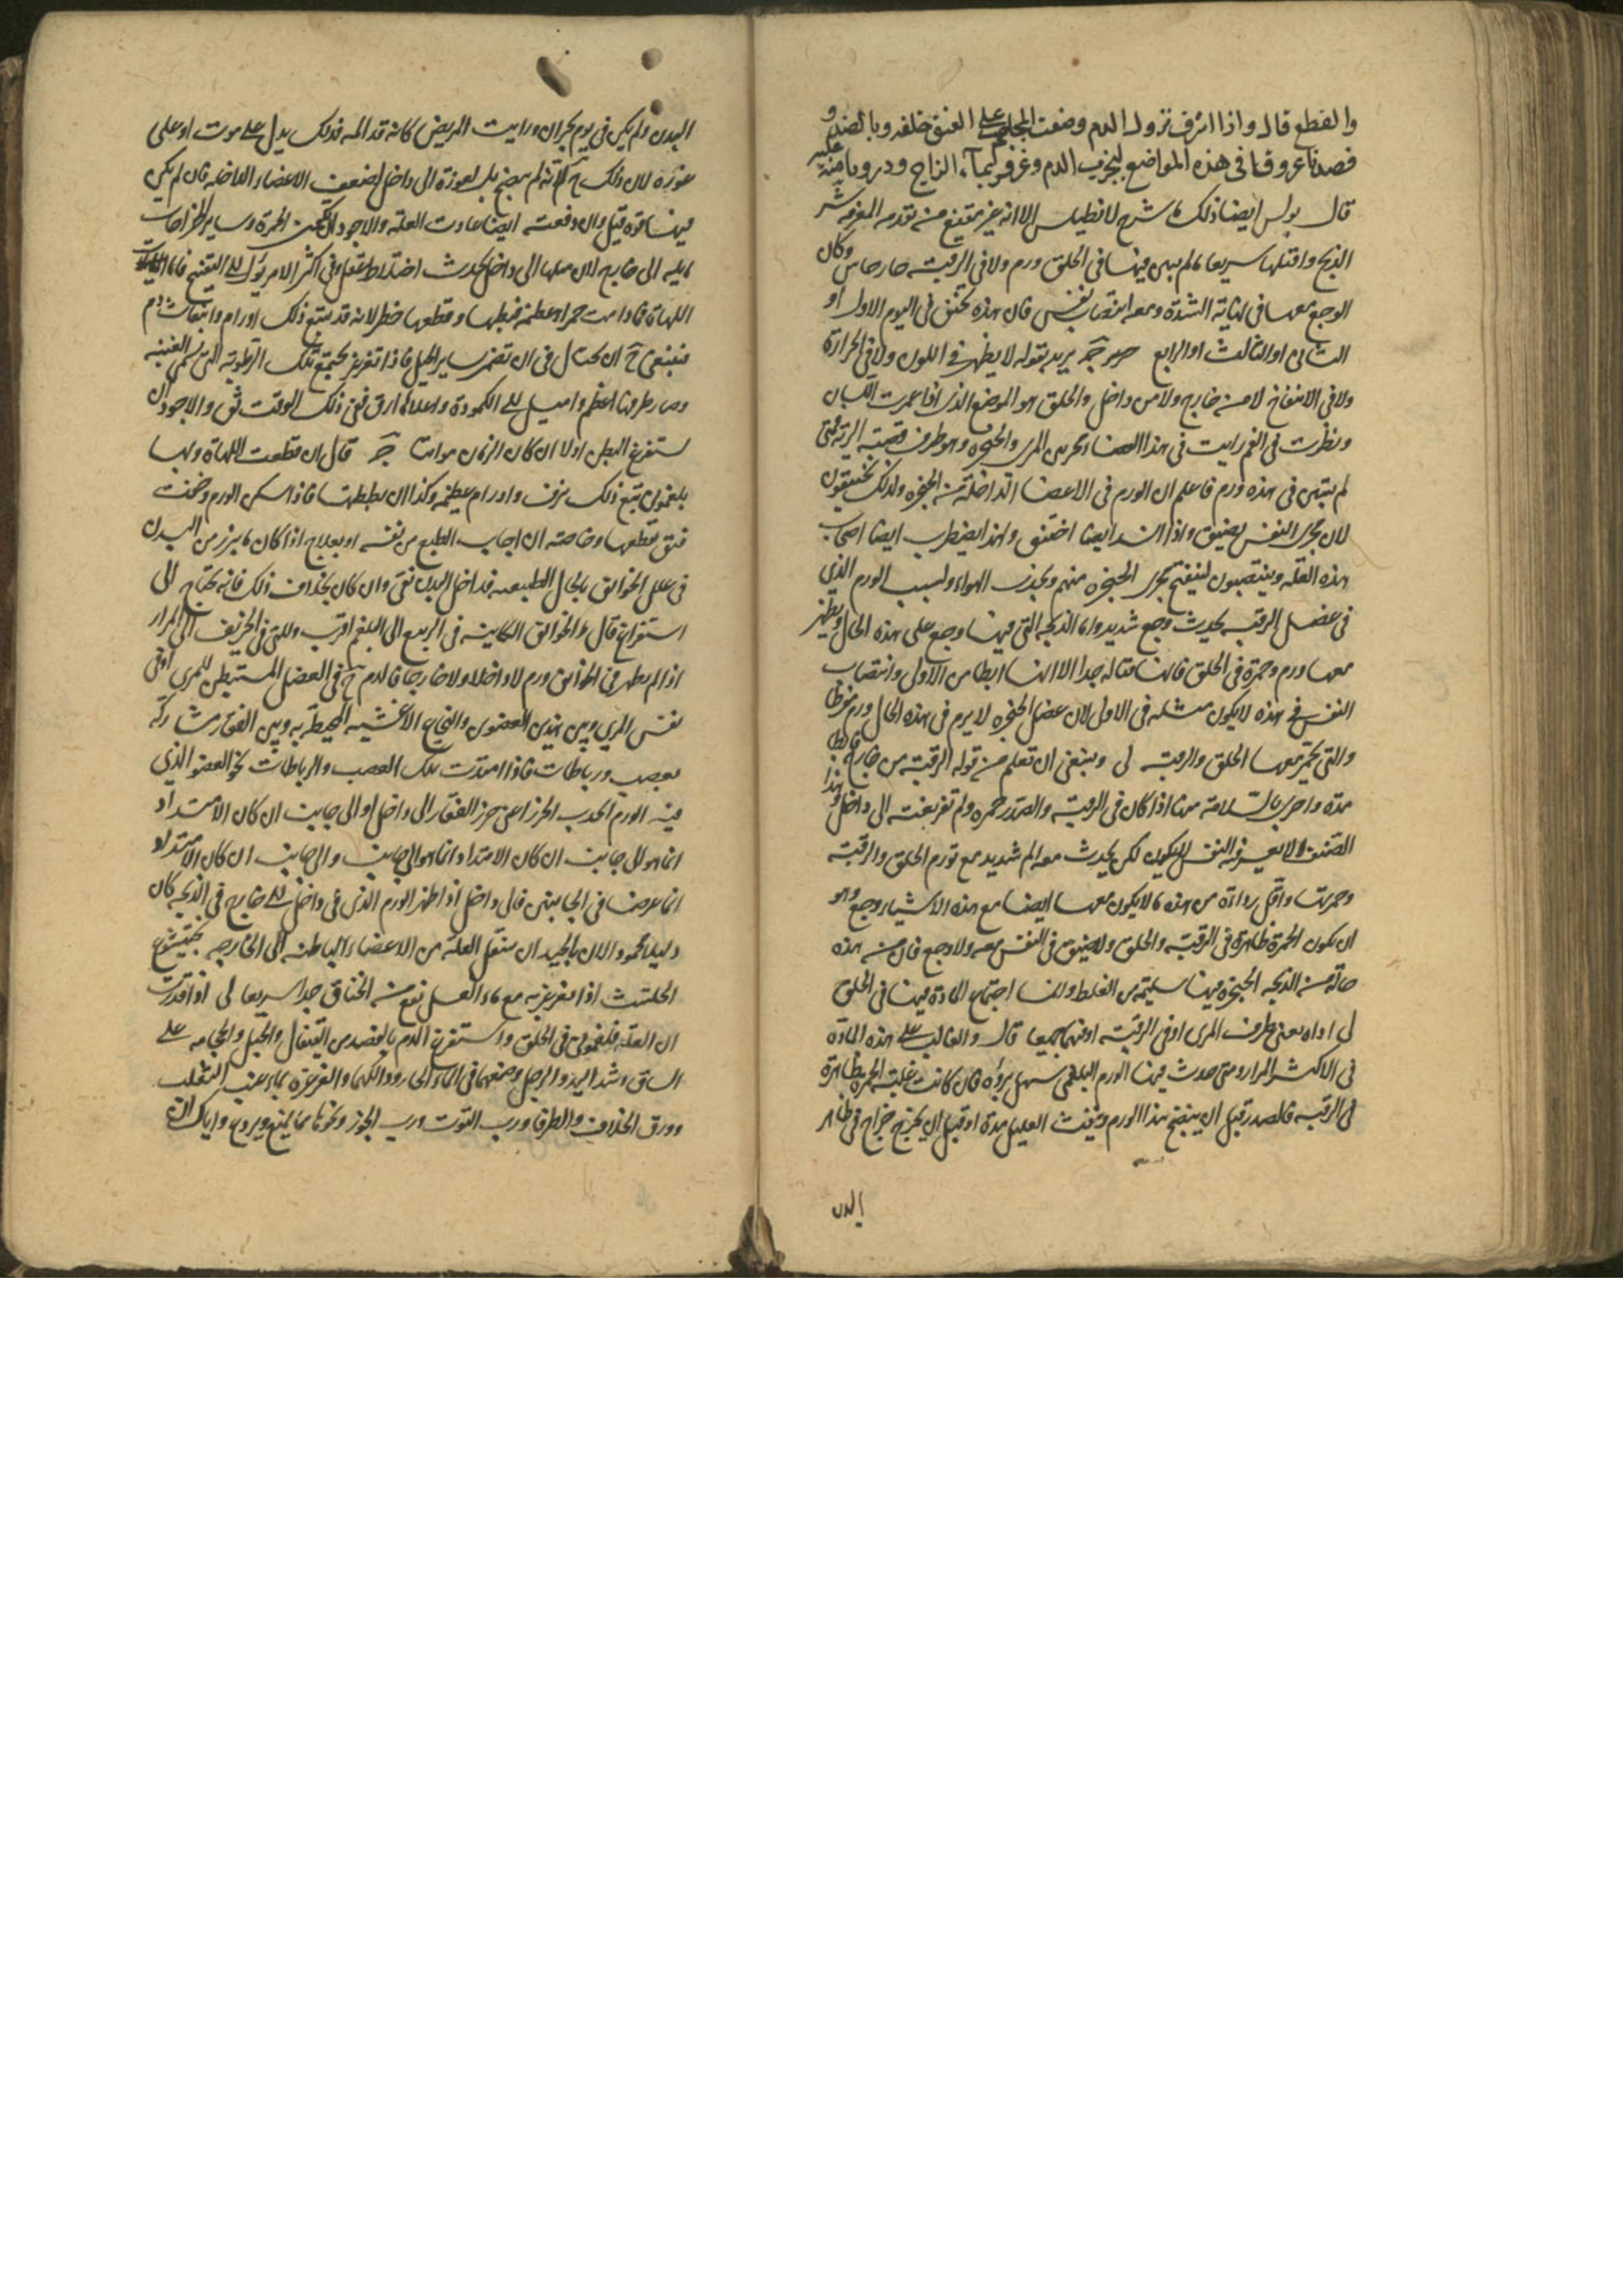 والقطع قال واذا اشرف نزول الدم وضعت المحاجم على العنق خلفه وبالضد و
فصدنا عروقا في هذه المواضع ليجذب الدم وغرغر بماء الزاج ودرورنا منه عليه
قال بولس ايضا ذلك ما شرح لانطيلس الا انه غير مقنع من تقدمه المعرفه شر
الذبح واقتلها سريعا ما لم يبين فيها في الحلق ورم ولا في الرقبة خارجا من وكان
الوجع معها في نهاية الشدة ومعه انتصاب نفس فان هذه تخنق في اليوم الاول او
الثاني او الثالث او الرابع ج يريد بقوله لا يظهر في اللون ولا في الحرارة
ولا في الانتفاخ لا من خارج ولا من داخل والحلق هو الموضع الذي اذا غمزت اللسان
ونظرت في الفم رايت في هذا الفضاء مجرى المرى والحنجرة وهو طرف قصبة الرية فمتى
لم يتبين في هذه ورم فاعلم ان الورم في الاعضا الداخلة من الحنجرة ولذلك يختنقون
لان مجرى النفس يضيق واذا انسد ايضا اختنق ولهذا يضطرب ايضا اصحاب
هذه العلة وينتصبون لينفتح مجرى الحنجرة منهم ويجذب الهواء ولسبب الورم الذي
في عضل الرقبة يحدث وجع شديد واما الذبحة التي فيها وجع على هذه الحال ويظهر
معها ورم وحمرة في الحلق فانها قتالة جدا الا انها ابطا من الاولى وانتصاب
النفس في هذه لا يكون مثله في الاولى لان عضل الحنجرة لا يرم في هذه الحال ورم مفرطا
والتي تحمر معها الحلق والرقبة لى وينبغي ان تعلم من قوله الرقبة من خارج فابطا
مدة واحرى بالسلامة مهنا اذا كان في الرقبة والصدر حمرة ولم تغر بغتة الى داخل وهذا
الصنف لا يعسر فيه النفس لكن يحدث معه الم شديد مع تورم الحلق والرقبة
وحمرتها واقل رداءة من هذه ما لا يكون معها ايضا مع هذه الاشياء وجع وهو
ان يكون الحمرة ظاهرة في الرقبة والحلق ولا ضيق في النفس معه ولا وجع فان من هذه
حالة من الذبحة الحنجرة فيها سليمة من الغلظ وانما اجتماع المادة فيها في الحلق
لى اراه يعني طرف المرى او في الرقبة او فيهما جميعا قال والغالب على هذه المادة
في الاكثر المرار ومتى حدث فيها الورم البلغمي سهل برؤه فان كانت غلبت الحمرة ظاهرة
في الرقبة فالصدر قبل ان ينضج هذا الورم ونفث العليل مدة او قبل ان يخرج خراج في ظاهر
البدن
البدن ولم يكن في يوم بحران ورايت المريض كانه قد المه فذلك يدل على موت او على
عودة لان ذلك ح كانه لم ينضج بل لعودة الى داخل لضعف الاعضاء الفاضلة فان لم يكن
فيها قوة قتل وان دفعت ايضا عادت العلة والاجود ان يكون الحمرة وساير الخراجات
مايلة الى خارج لان ميلها الى داخل يحدث اختلاط عقل وفي اكثر الامر يؤل الى التقيح فاما
اللهاة فما دامت حمراء عظيمة فبطها وقطعها خطر لانه قد يتبع ذلك اورام وانبعاث دم
فينبغي ح ان يحتال في ان تضمر بساير الحيل فاذا تفرغ بجميع تلك الرطوبة التي تسمى العنبة
وصار طرفها اعظم واميل الى الكمودة واعلاها ارق ففي ذلك الوقت ثق والاجود ان
يستفرغ البطن اولا ان كان الزمان مواتيا ج قال ان قطعت اللهاة وبها
بلغموني تبع ذلك نزف واورام عظيمة وكذا ان بططتها فاذا سكن الورم وضمت
فثق بقطعها وخاصة ان اجاب الطبع من نفسه او بعلاج اذا كان ما يبرز من البدن
في علل الخوانيق بالحال الطبيعية فداخل البدن نقي وان كان بخلاف ذلك فانه يحتاج الى
استفراغ قال والخوانيق الكاينة في الربيع الى البلغم اقرب والتي في الخريف الى المرار
اذا لم يظهر في الخوانيق ورم لا داخلا ولا خارجا فالورم ح في العضل المستبطن للمرى او في
نفس المرى وبين هذين العضوين والنخاع الاغشية المحيطة به وبين الفقار مشاركة
بعصب ورباطات فاذا امتدت تلك العصب والرباطات نحو العضو الذي
فيه الورم انجذب الخرز اعني خرز الفقار الى داخل او الى جانب ان كان الامتداد
انما هو الى جانب ان كان الامتداد انما هو الى جانب والى جانبين ان كان الامتداد
انما عرضا في الجانبين فالى داخل اذا ظهر الورم الذي في داخل الى خارج في الذبحة كان
دليلا محمودا لان بالجيد ان تنتقل العلة من الاعضاء الباطنة الى الخارجة بختيشوع
الحلتيت اذا تغرغر به مع ماء العسل نفع من الخناق جدا سريعا لى اذا قدرت
ان العلة فلغموني في الحلق واستفرغ الدم بالفصد من القيفال والحبل والحجامة على
الساق وشد اليد والرجل وضعهما في الماء الحار ودلكهما والغرغرة بماء عنب الثعلب
وورق الخلاف والطرفا ورب التوت ورب الجوز ونحوها مما يمنع ويردع واياك ان